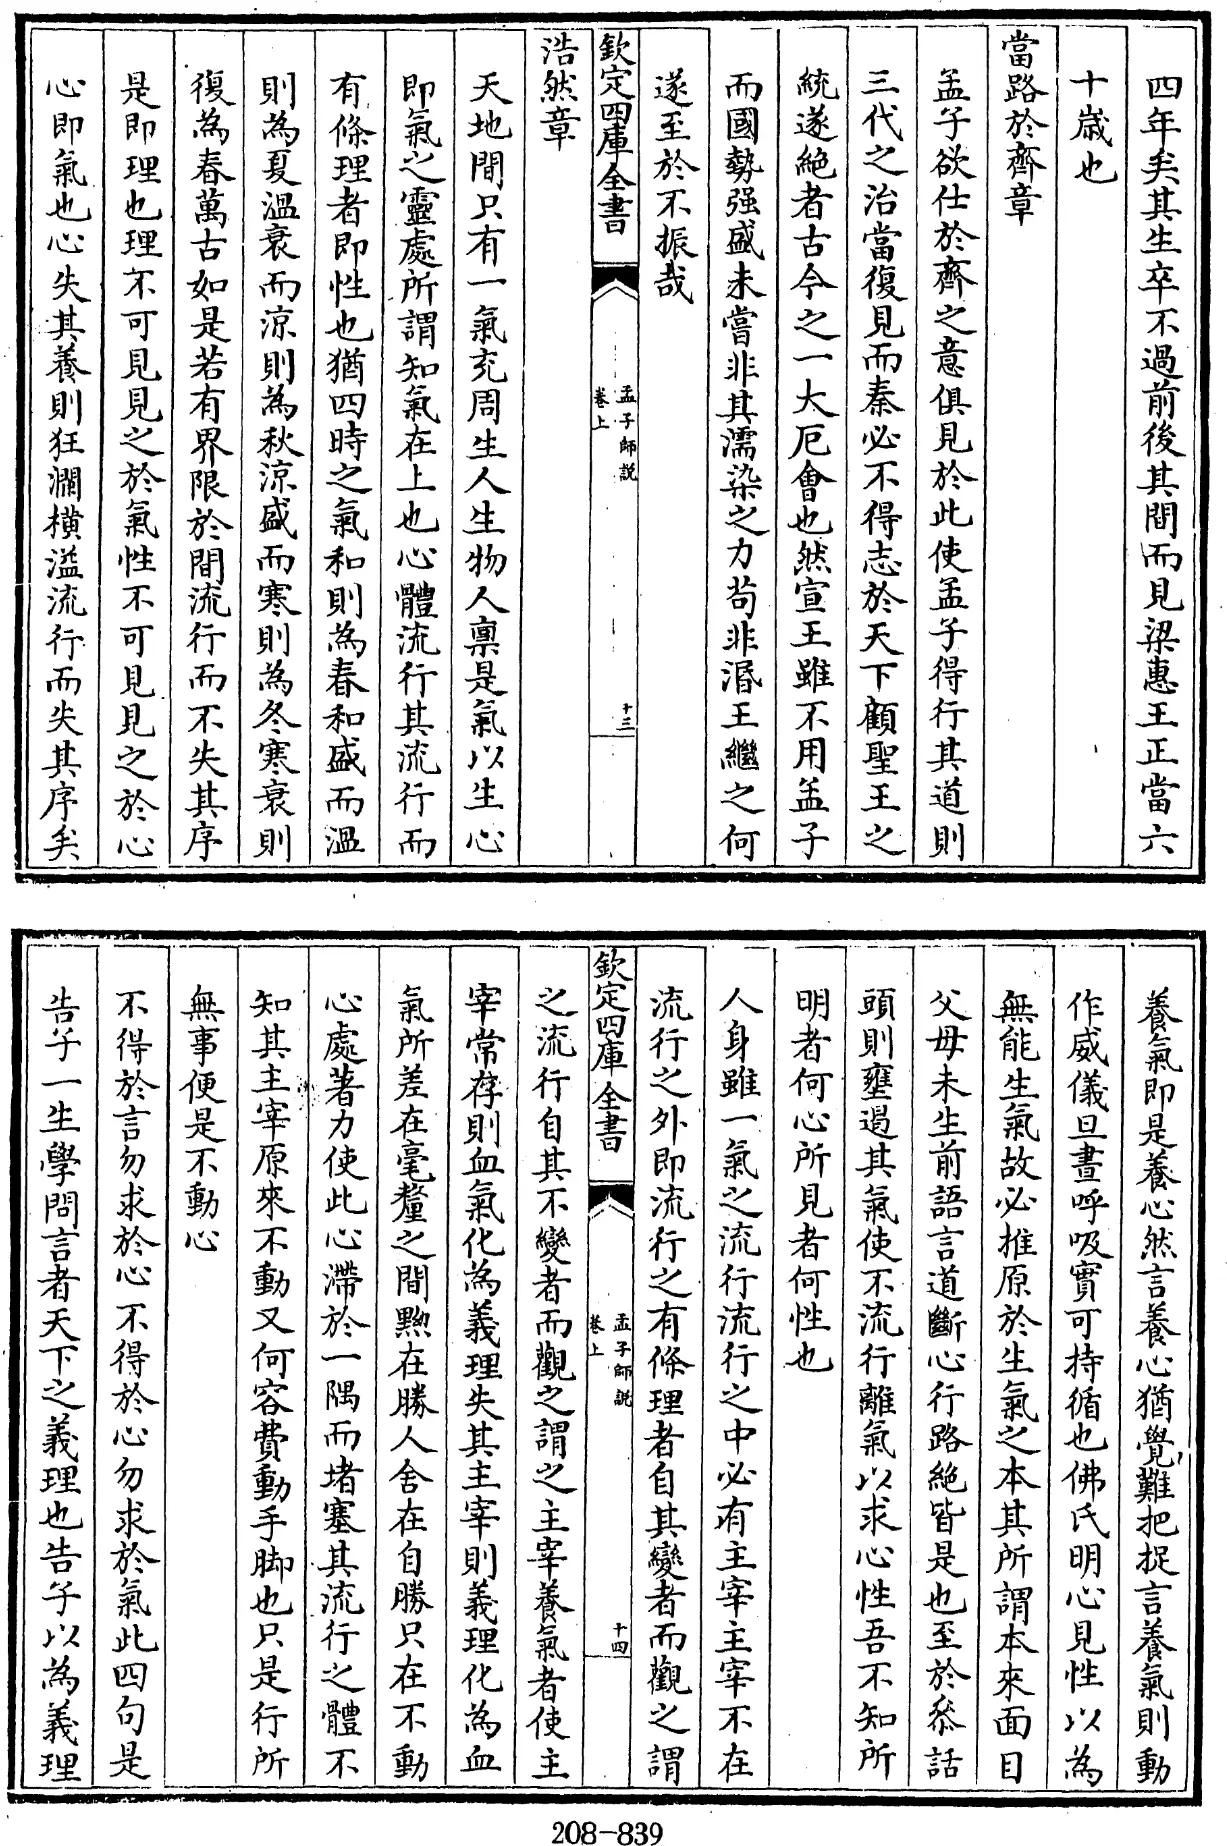 四年矣其生卒不過前後其間而見梁惠王正當六
十歳也
當路於齊章
孟子欲仕於齊之意俱見於此使孟子得行其道則
三代之治當復見而秦必不得志於天下顧聖王之
統遂絶者古今之一大厄會也然宣王雖不用孟子
而國勢强盛未嘗非其濡染之力茍非湣王繼之何
遂至於不振哉
欽定四庫全書
孟子師説
卷上
十三
浩然章
天地間只有一氣充周生人生物人禀是氣以生心
即氣之靈處所謂知氣在上也心體流行其流行而
有條理者即性也猶四時之氣和則為春和盛而溫
則為夏溫衰而涼則為秋涼盛而寒則為冬寒衰則
復為春萬古如是若有界限於間流行而不失其序
是即理也理不可見見之於氣性不可見見之於心
心即氣也心失其養則狂瀾橫溢流行而失其序矣
養氣即是養心然言養心猶覺難把捉言養氣則動
作威儀旦晝呼吸實可持循也佛氏明心見性以為
無能生氣故必推原於生氣之本其所謂本來面目
父母未生前語言道斷心行路絶皆是也至於叅話
頭則壅遏其氣使不流行離氣以求心性吾不知所
明者何心所見者何性也
人身雖一氣之流行流行之中必有主宰主宰不在
流行之外即流行之有條理者自其變者而觀之謂
欽定四庫全書
孟子師説
卷上
十四
之流行自其不變者而觀之謂之主宰養氣者使主
宰常存則血氣化為義理失其主宰則義理化為血
氣所差在毫釐之間黝在勝人舍在自勝只在不動
心處著力使此心滯於一隅而堵塞其流行之體不
知其主宰原來不動又何容費動手脚也只是行所
無事便是不動心
不得於言勿求於心不得於心勿求於氣此四句是
告子一生學問言者天下之義理也告子以為義理
208-839